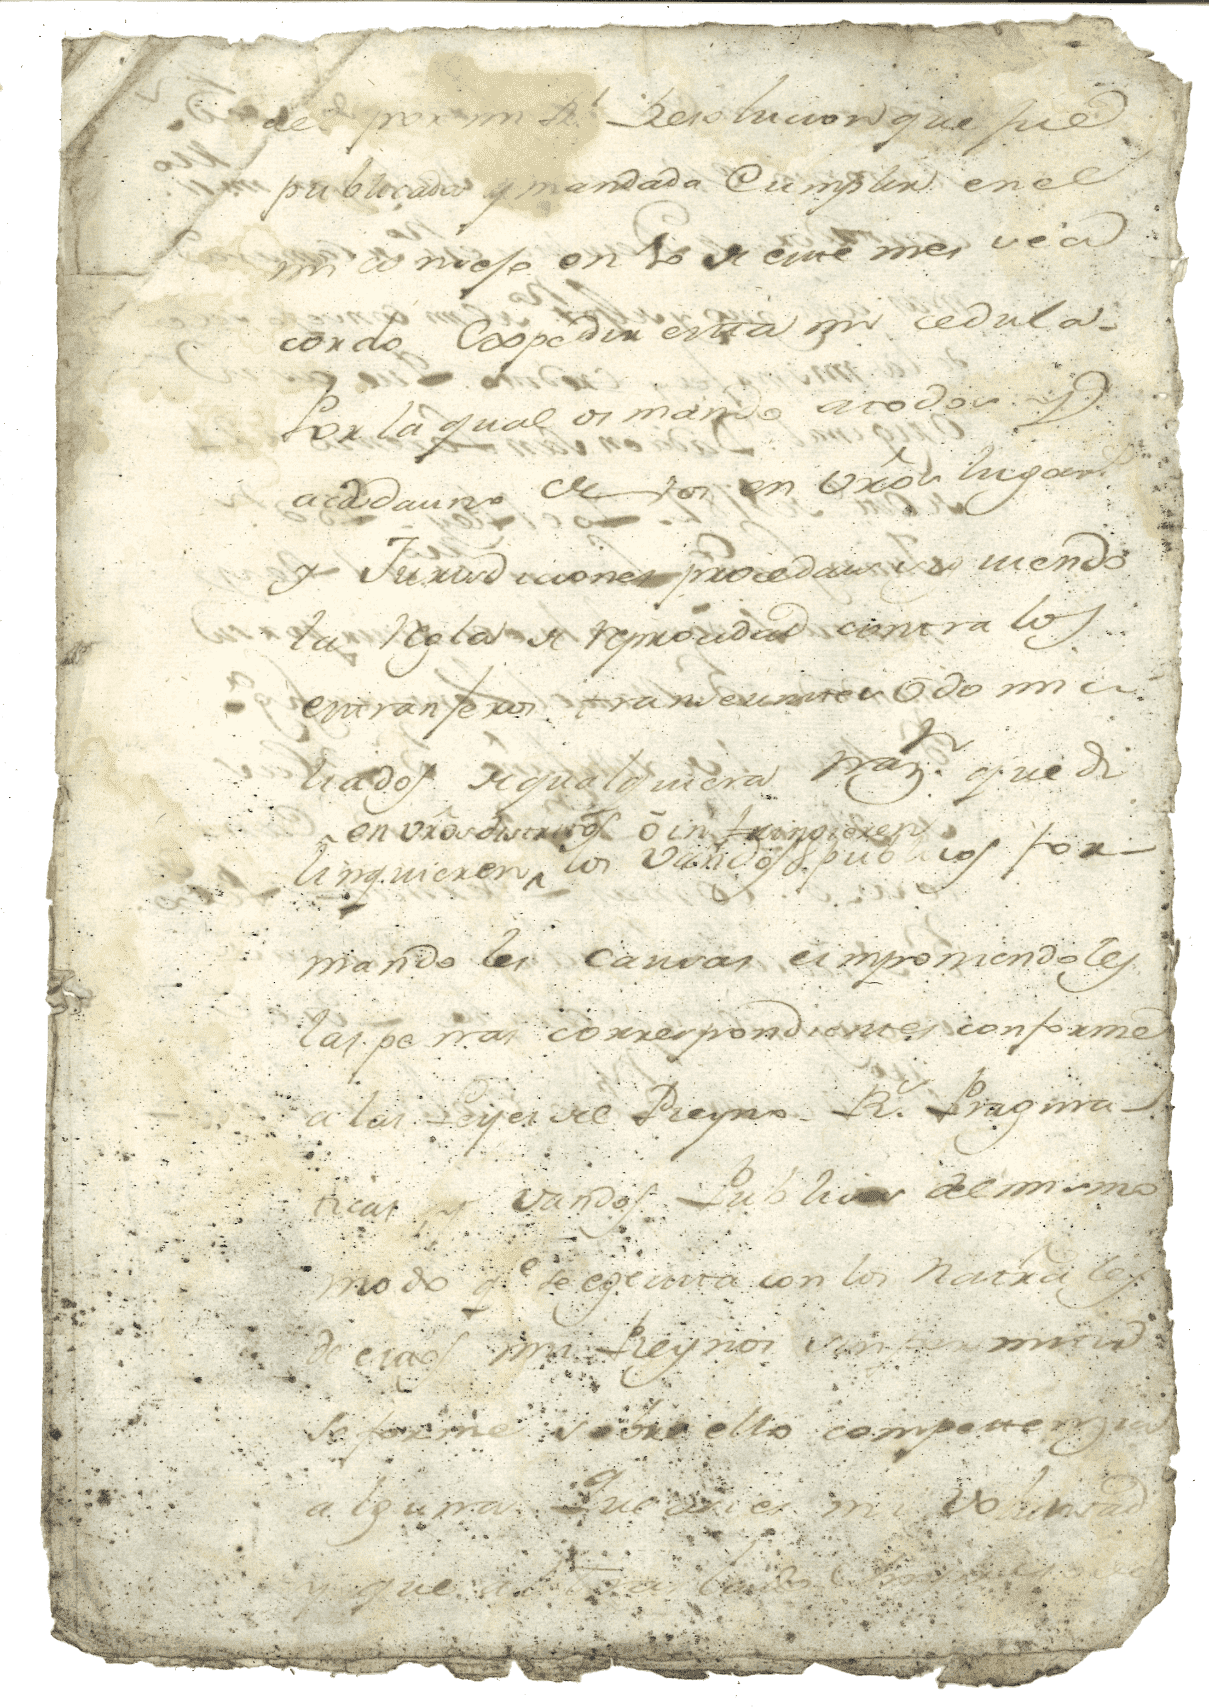 de por mi Rl. Resolucion que fué
publicada y mandada Cumplir en el
mi consejo en 20 de este mes se a
cordó Expedir esta mi cedula.
Por la qual os mando a todos y
a cada uno de vos en vros lugars
y Jurisdiciones procedais siguiendo
la regla de reprocidad contra los
extranjeros transeuntes ó domici
liados de qualquiera Naz.n que di
en vros distritos ó infringieren
linquieren los vandos publicos for-
mandoles causas e imponiendoles
las penas correspondientes conforme
a las Leyes del Reyno Rs. Pragma-
ticas y vandos Publicos del mismo
modo qe se egecuta con los Natrales
de estos mis Reynos sin permitir
se forme sobre ello competenzia
alguna. Que asi es mi voluntad
y que al traslado impreso